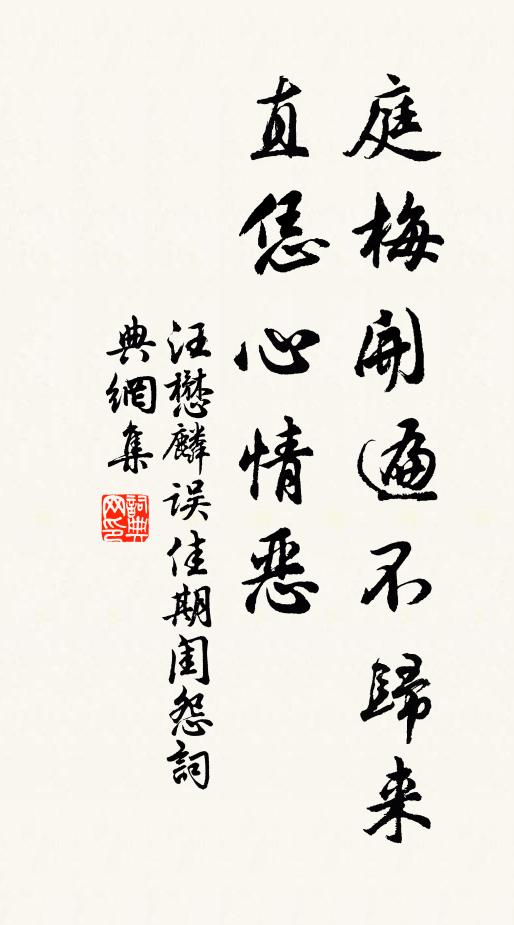 庭梅開遍不歸来
直恁心情恶
汪懋麟误佳期闺怨詞
典網集
詞典网印